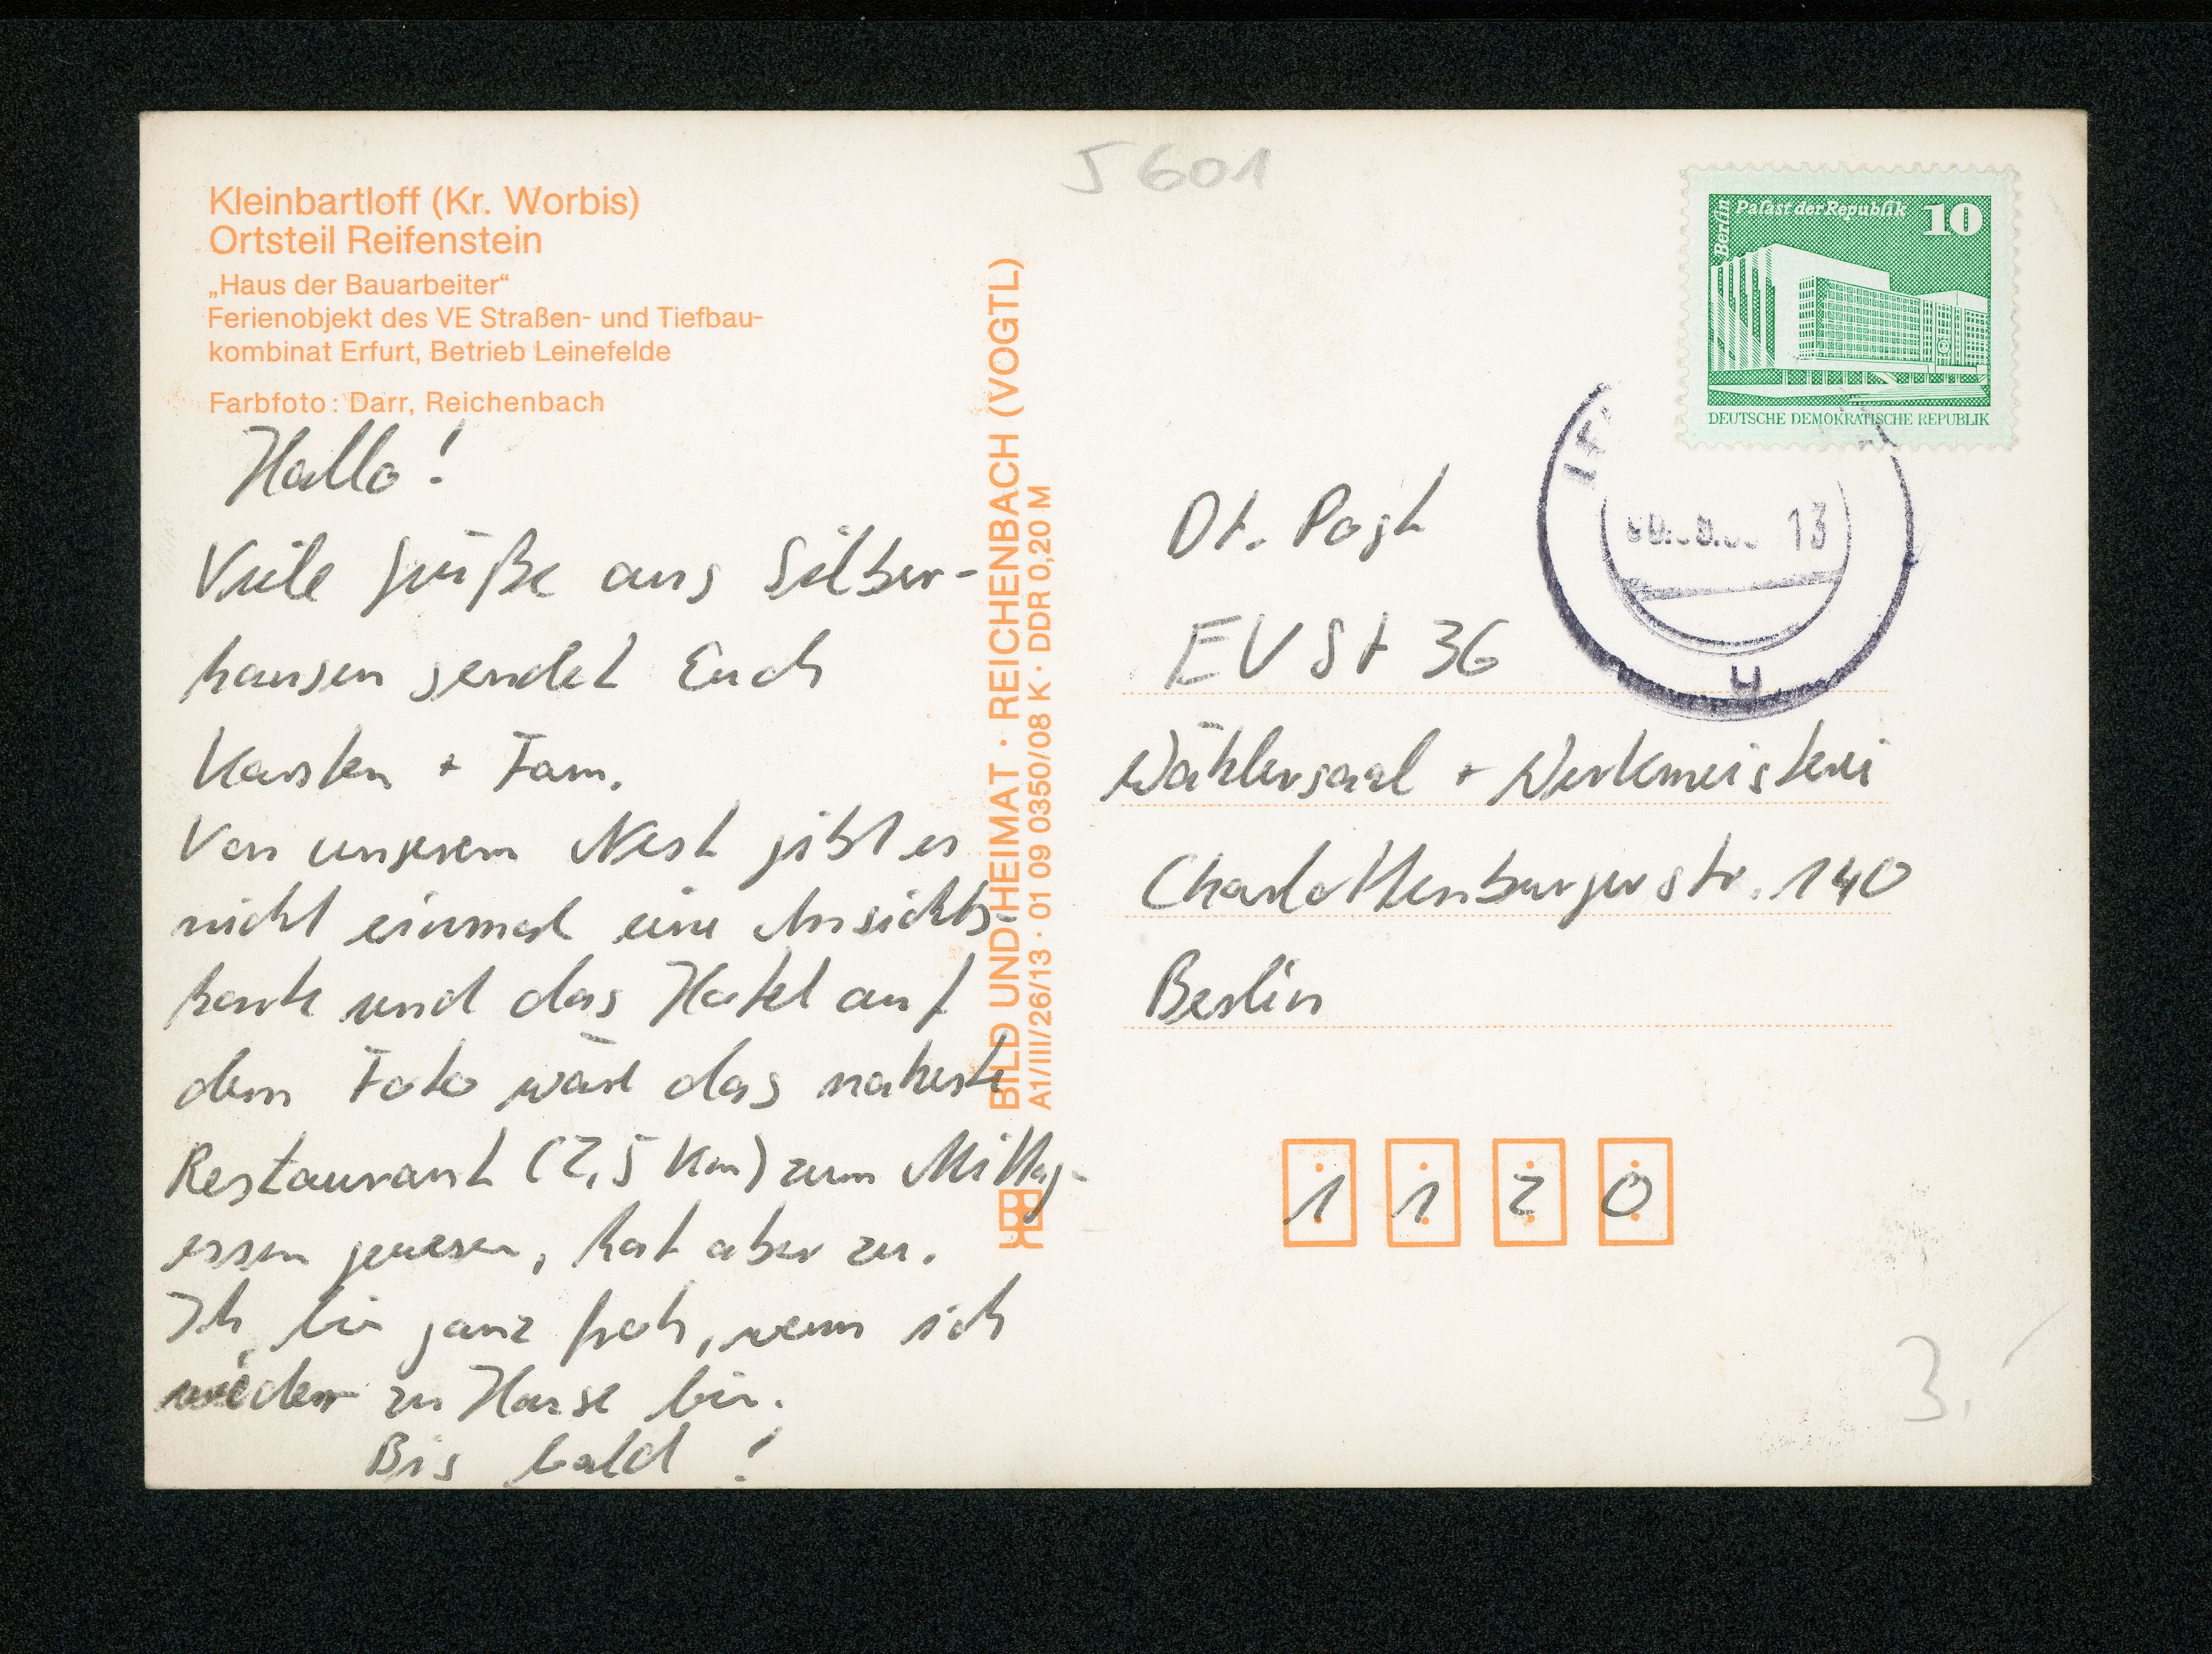 Kleinbartloff (Kr. Worbis)
Ortsteil Reifenstein
„Haus der Bauarbeiter“
Ferienobjekt des VE Straßen- und Tiefbau-
kombinat Erfurt, Betrieb Leinefelde
Farbfoto: Darr, Reichenbach
Hallo!
Viele Grüße aus Silber-
hausen sendet Euch
Karsten + Fam.
Von unserem Nest gibt es
nicht einmal eine Ansichts-
karte und das Hotel auf
dem Foto wäre das naheste
Restaurant (2,5 Km) zum Mittag-
essen gewesen, hat aber zu.
Ich bin ganz froh, wenn ich
wieder zu Hause bin.
Bis bald!
BILD UND HEIMAT · REICHENBACH (VOGTL)
A1/III/26/13 · 01 09 0350/08 K · DDR 0,20 M
5601
Berlin
Palast der Republik 10
DEUTSCHE DEMOKRATISCHE REPUBLIK
13
u
Dt. Post
EVSt 36
Wählersaal + Werkmeisterei
Charlottenburgerstr. 140
Berlin
1 1 2 0
3,